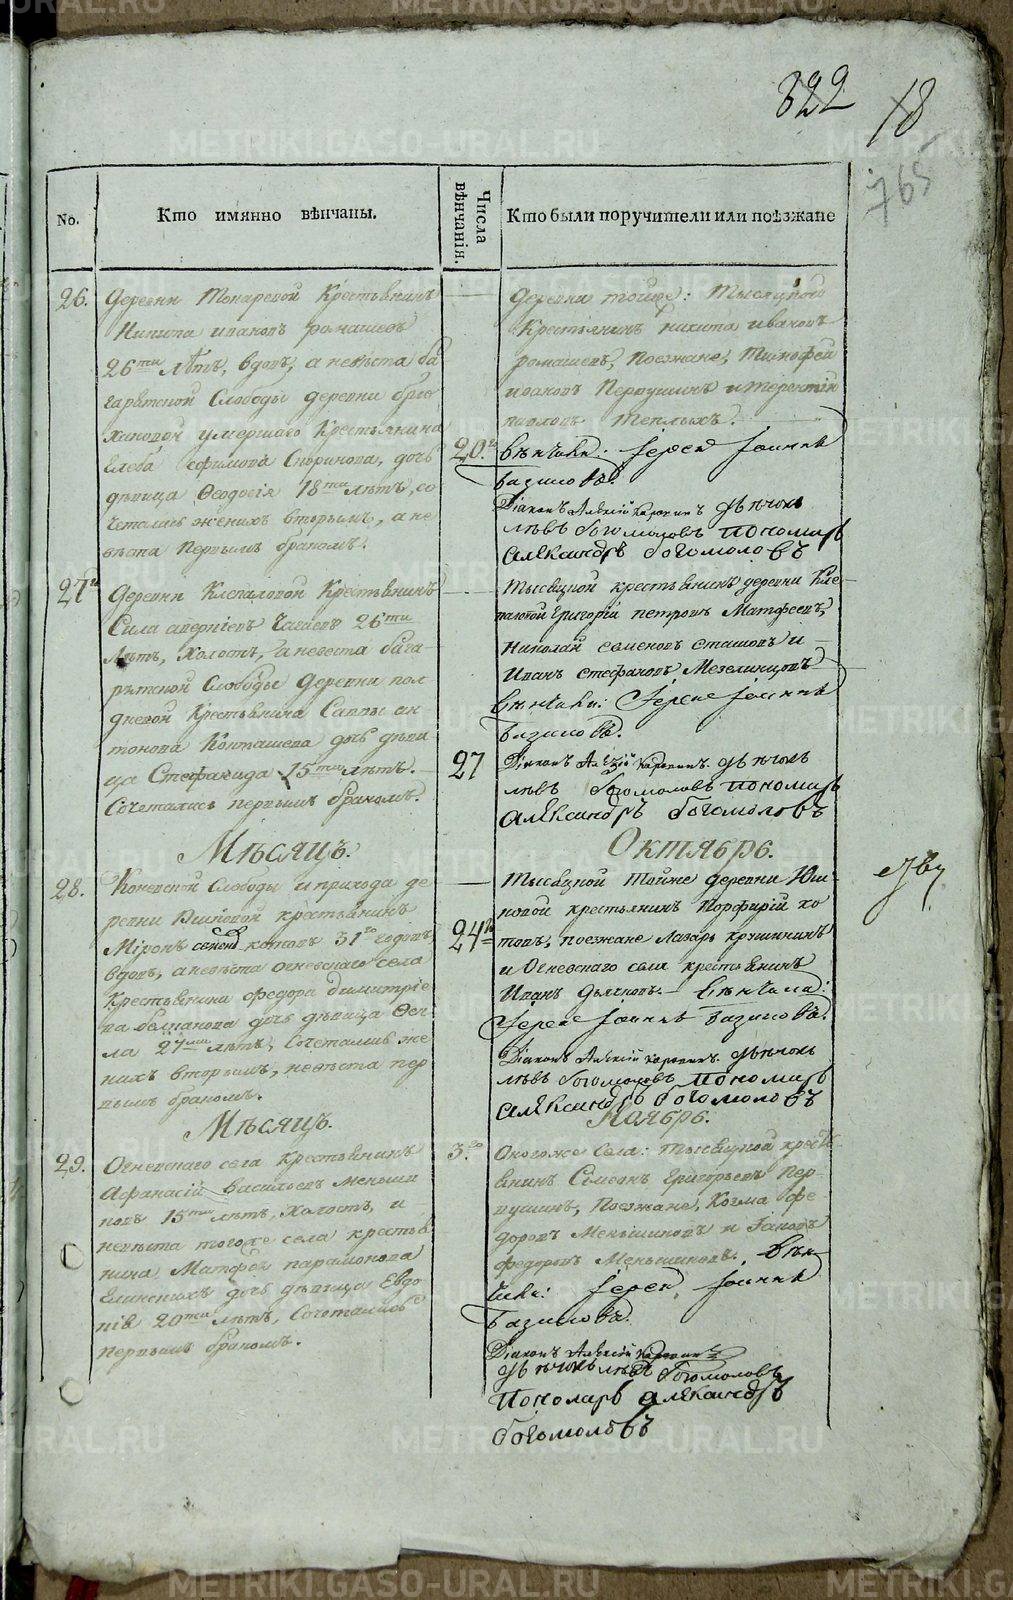 322
18
765
No.
Кто имянно вѣнчаны.
Числа вѣнчанія.
Кто были поручители или поѣзжане
26.
Деревни Токаревой Крестьянинъ
Никита ивановъ ромашевъ
26ти лѣтъ, вдовъ, а невѣста ба-
гарятской Слободы деревни брю-
хановой умершаго Крестьянина
Глеба ефимова Споринова, дочь
дѣвица Ѳеодосія 18ти лѣтъ, со
четались женихъ вторымъ, а не
вѣста первымъ бракомъ.
20го
деревни тойже: Тысяцкой
Крестьянинъ никита ивановъ
ромашевъ, Поезжане, Тимофей
ивановъ Первушинъ и терентій
павловъ Теплыхъ.
вѣнчалъ: Іерей Іоаннъ
Базиловъ.
Діаконъ Алексій дьячокъ
левъ богомоловъ пономарь
Александръ богомоловъ
27й
Деревни Клепаловой Крестьянинъ
Сила аверкіевъ Чагаевъ 26ти
Лѣтъ, Холостъ, а невеста бага-
рятской Слободы деревни пол
дневой Крестьянина Саввы ан
тонова Конташева дочь дѣви
ца Стефанида 15ти лѣтъ.
Сочетались первымъ бракомъ.
27
Тысяцкой крестьянинъ деревни Кле-
паловой Григорій петровъ Матфеевъ,
Николай семеновъ сташовъ и
Иванъ стефановъ Мезелинцовъ
Вѣнчалъ: Іерей Іоаннъ
Базиловъ.
Діаконъ Алексій дьячокъ
левъ богомоловъ пономарь
Александръ богомоловъ
Мѣсяцъ.
Октябрь.
28.
Коневской Слободы и прихода де
ревни Юшковой крестьянинъ
Миронъ семеновъ котовъ 31го годовъ
вдовъ, а невѣста огневскаго села
Крестьянина федора димитріе
ва балканова дочь дѣвица Ѳек-
ла 27ми лѣтъ, Сочетались же
нихъ вторымъ, невѣста пер
вымъ бракомъ.
24го
Тысяцкой Тойже деревни Юш-
ковой крестьянинъ Порфирій ко
товъ, поезжане Лазарь крушининъ
и Огневскаго села крестьянинъ
Иванъ дьячковъ. Вѣнчалъ:
Іерей Іоаннъ Базиловъ.
Діаконъ Алексій дьячокъ
левъ богомоловъ пономарь
Александръ богомоловъ
Мѣсяцъ.
Ноябрь.
29.
Огневскаго села Крестьянинъ
Афанасій Васильевъ Меньши
ковъ 15ти лѣтъ, Холостъ, и
невѣста тогоже села крестья
нина Матфея парамонова
Елинскихъ дочь дѣвица Евдо
кія 20ти лѣтъ, Сочетались
первымъ бракомъ.
3го
Оногоже Села: Тысяцкой кресть
янинъ Симеонъ Григорьевъ Пер-
вушинъ, Поезжане, Козма фе-
доровъ Меньшиковъ и Іаковъ
федоровъ Меньшиковъ. Вѣн-
чалъ: Іерей Іоаннъ
Базиловъ.
Діаконъ Алексій
дьячокъ левъ богомоловъ
Пономарь Александръ
богомоловъ